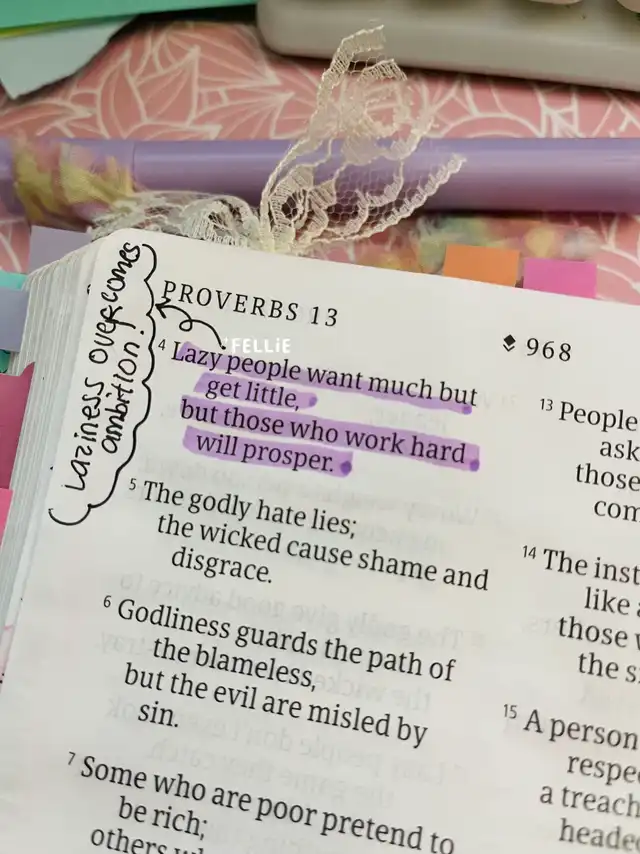 Laziness overcomes
ambition!
PROVERBS 13
968
FELLiE
4 Lazy people want much but
get little,
but those who work hard
will prosper.
5 The godly hate lies;
the wicked cause shame and
disgrace.
6 Godliness guards the path of
the blameless,
but the evil are misled by
sin.
7 Some who are poor pretend to
be rich;
others
13 People
ask
those
com
14 The inst
like
those
the s
15 A person
respe
a treach
heade